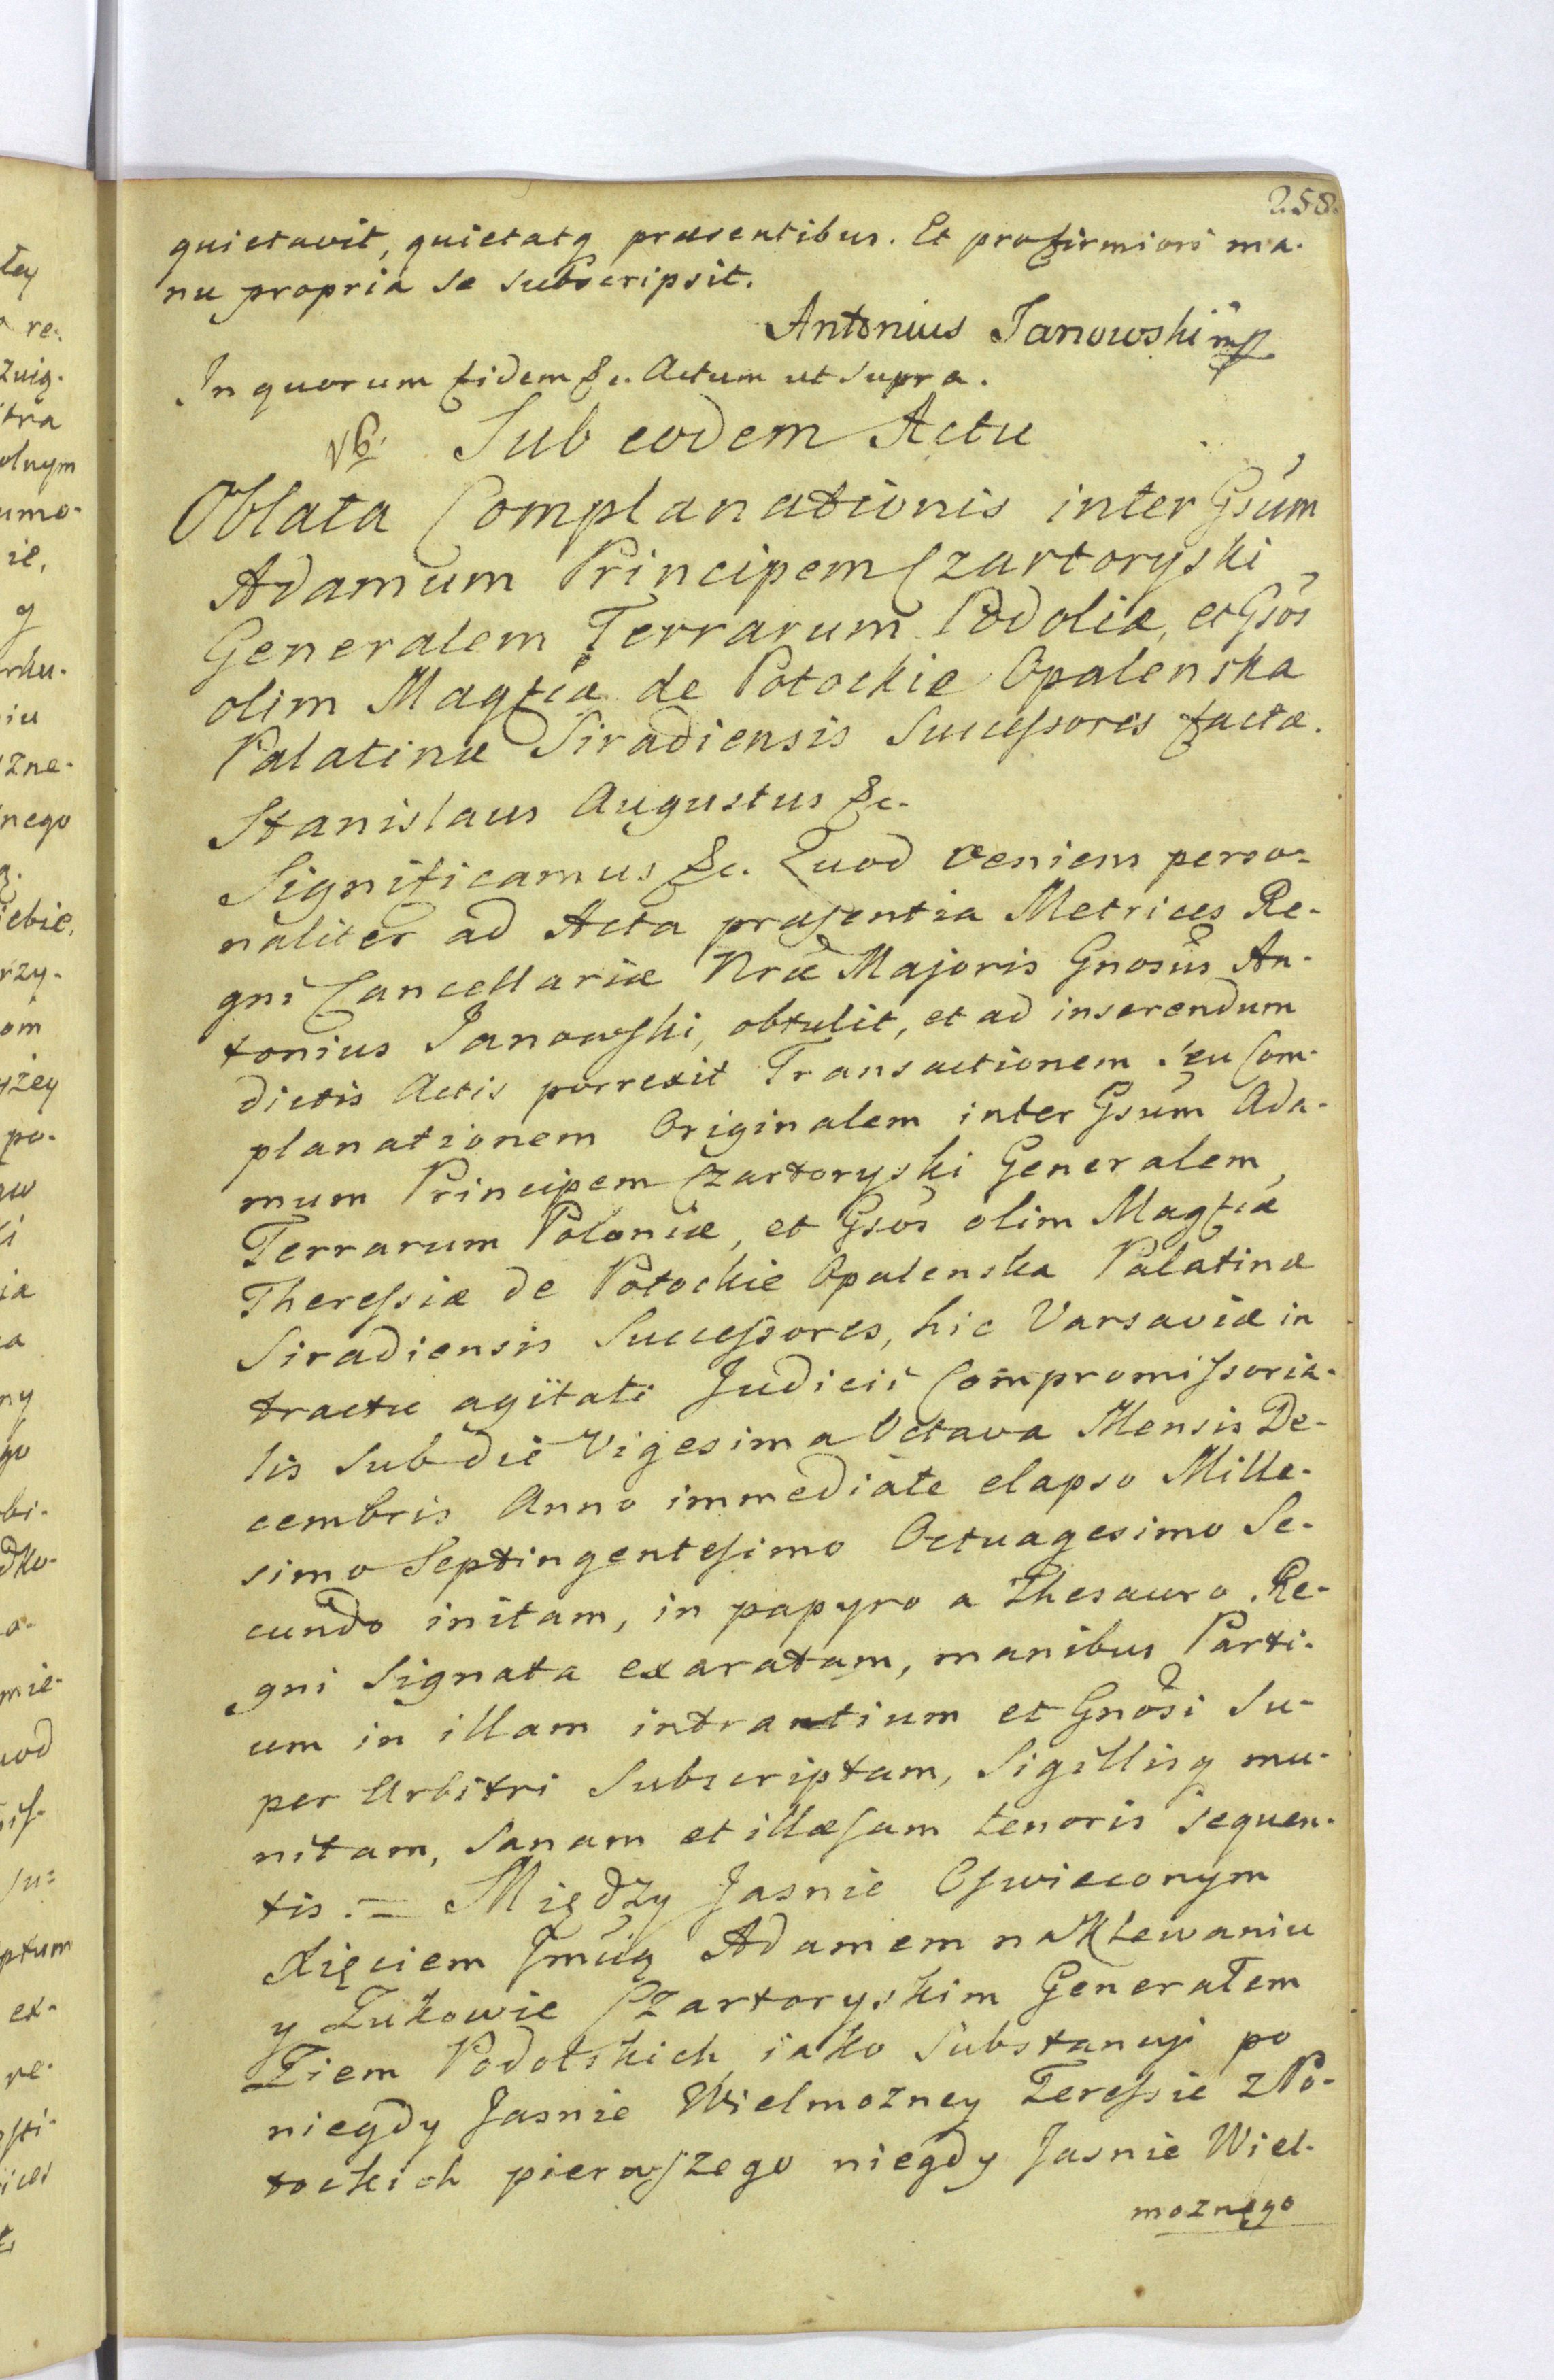 258.
quietavit, quietatq præsentibus. Et pro firmiori ma-
nu propria se subscripsit.
Antonius Janowski mp
In quorum fidem &c. Actum ut supra.
Sub eodem Actu
Oblata Complanationis inter Gsum
Adamum Principem Czartoryski
Generalem Terrarum Podoliæ, et Gsos
olim Magfcæ de Potockie Opalenska
Palatinæ Siradiensis Successores factæ.
Stanislaus Augustus &c.
Significamus &c. Quod veniens perso-
naliter ad Acta præsentia Metrices Re-
gni Cancellariæ Nræ Majoris Gnosus An-
tonius Janowski, obtulit, et ad inserendum
dictis Actis porrexit Transactionem seu Com-
planationem Originalem inter Gsum Ada-
mum Principem Czartoryski Generalem
Terrarum Poloniæ, et Gsos olim Magfcæ
Theressiæ de Potockie Opalenska Palatinæ
Siradiensis Successores, hic Varsaviæ in
tractu agitati Judicii Compromissoria-
lis sub die Vigesima Octava Mensis De-
cembris Anno immediate elapso Mille-
simo Septingentesimo Octuagesimo Se-
cundo initam, in papyro a Thesauro Re-
gni Signata exaratam, manibus Parti-
um in illam intrantium et Gnosi Su-
per Arbitri Subscriptam, Sigillisq mu-
nitam, Sanam et illæsam tenoris sequen-
tis. = Między Jasnie Oswieconym
Xięciem Jmcią Adamem na Klewaniu
y Zukowie Czartoryskim Generałem
Ziem Podolskich iako Substancyi po
niegdy Jasnie Wielmozney Teressie z Po-
tockich pierwszego niegdy Jasnie Wiel-
moznego
tey
re-
zuią-
itra
olnym
umo-
ie,
y
iu
zne-
nego
iebie,
rzy-
om
yzey
po-
ia
a
ny
go
bi-
dko-
a-
mie-
uod
su=
ptum
ex-
re-